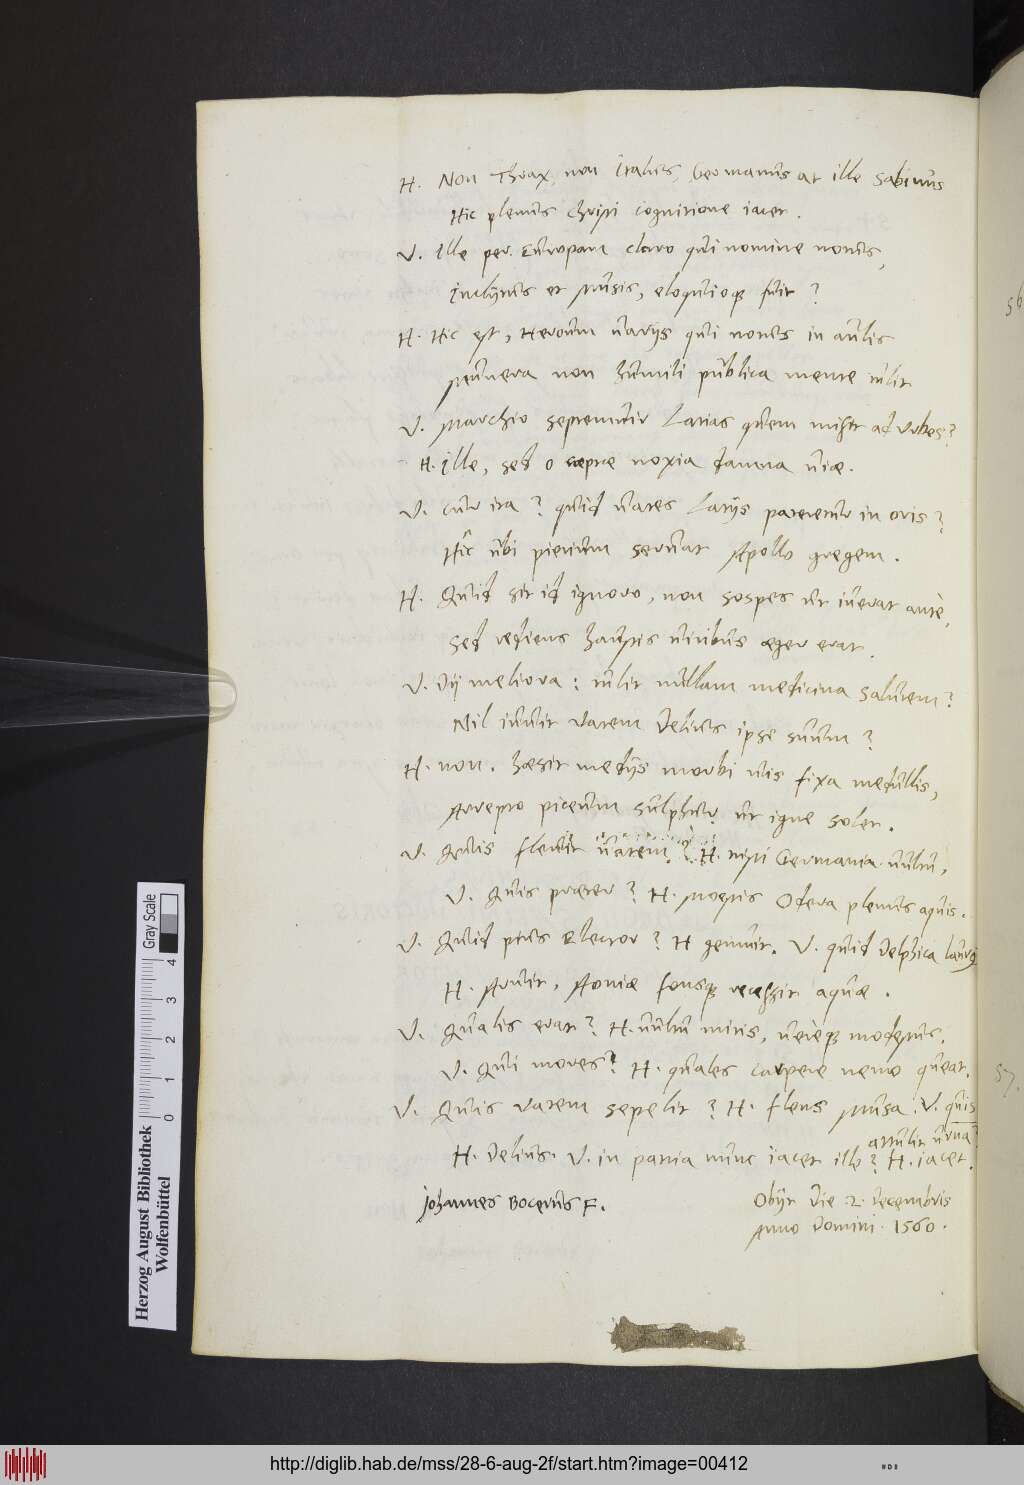 H. Non Thrax, non Italus, Germanus at ille Sabinus
Hic plenus Christi cognitione iacet.
V. Ille per Europam claro qui nomine notus,
Inclytus et Musis, eloquioq; fuit?
H. Hic est, Heroum variis qui notus in aulis
Munera non humili publica mente tulit
V. Marchio septemvir Latias quem misit ad urbes?
H. Ille, sed o saepe noxia damna viae.
V. Cur ita? quid vates Latiis paterentur in oris?
Hic ubi pierium servat Apollo gregem.
H. Quid sit id ignoro, non sospes ut iverat ante,
Sed rediens haustis viribus aeger erat.
V. Dii meliora: tulit nullam medicina salutem?
Nil iuvit vatem Delius ipse suum?
H. non. haesit mediis morbi vis fixa medullis,
Arrepto piceum sulphur ut igne solet.
V. Quis flevit vatem? H. nisi Germania vultu,
V. Quis praeter? H. moestis Odera plenus aquis.
V. Quid pius Elector? H gemuit. V. quid Delphica laurus
H. Aruit, Aoniae fonsq; recessit aquae.
V. Qualis erat? H. vultu mitis, vereq; modestus.
V. Qui mores? H. quales carpere nemo queat.
V. Quis vatem sepelit? H. flens Musa. V. quis
attulit urna?
H. Delius. V. in patria nunc iacet ille? H. iacet.
Johannes Bocerus F.
Obiit Die 2. Decembris
Anno Domini. 1560.
56
57.
Gray Scale
0 1 2 3 4
Herzog August Bibliothek
Wolfenbüttel
http://diglib.hab.de/mss/28-6-aug-2f/start.htm?image=00412